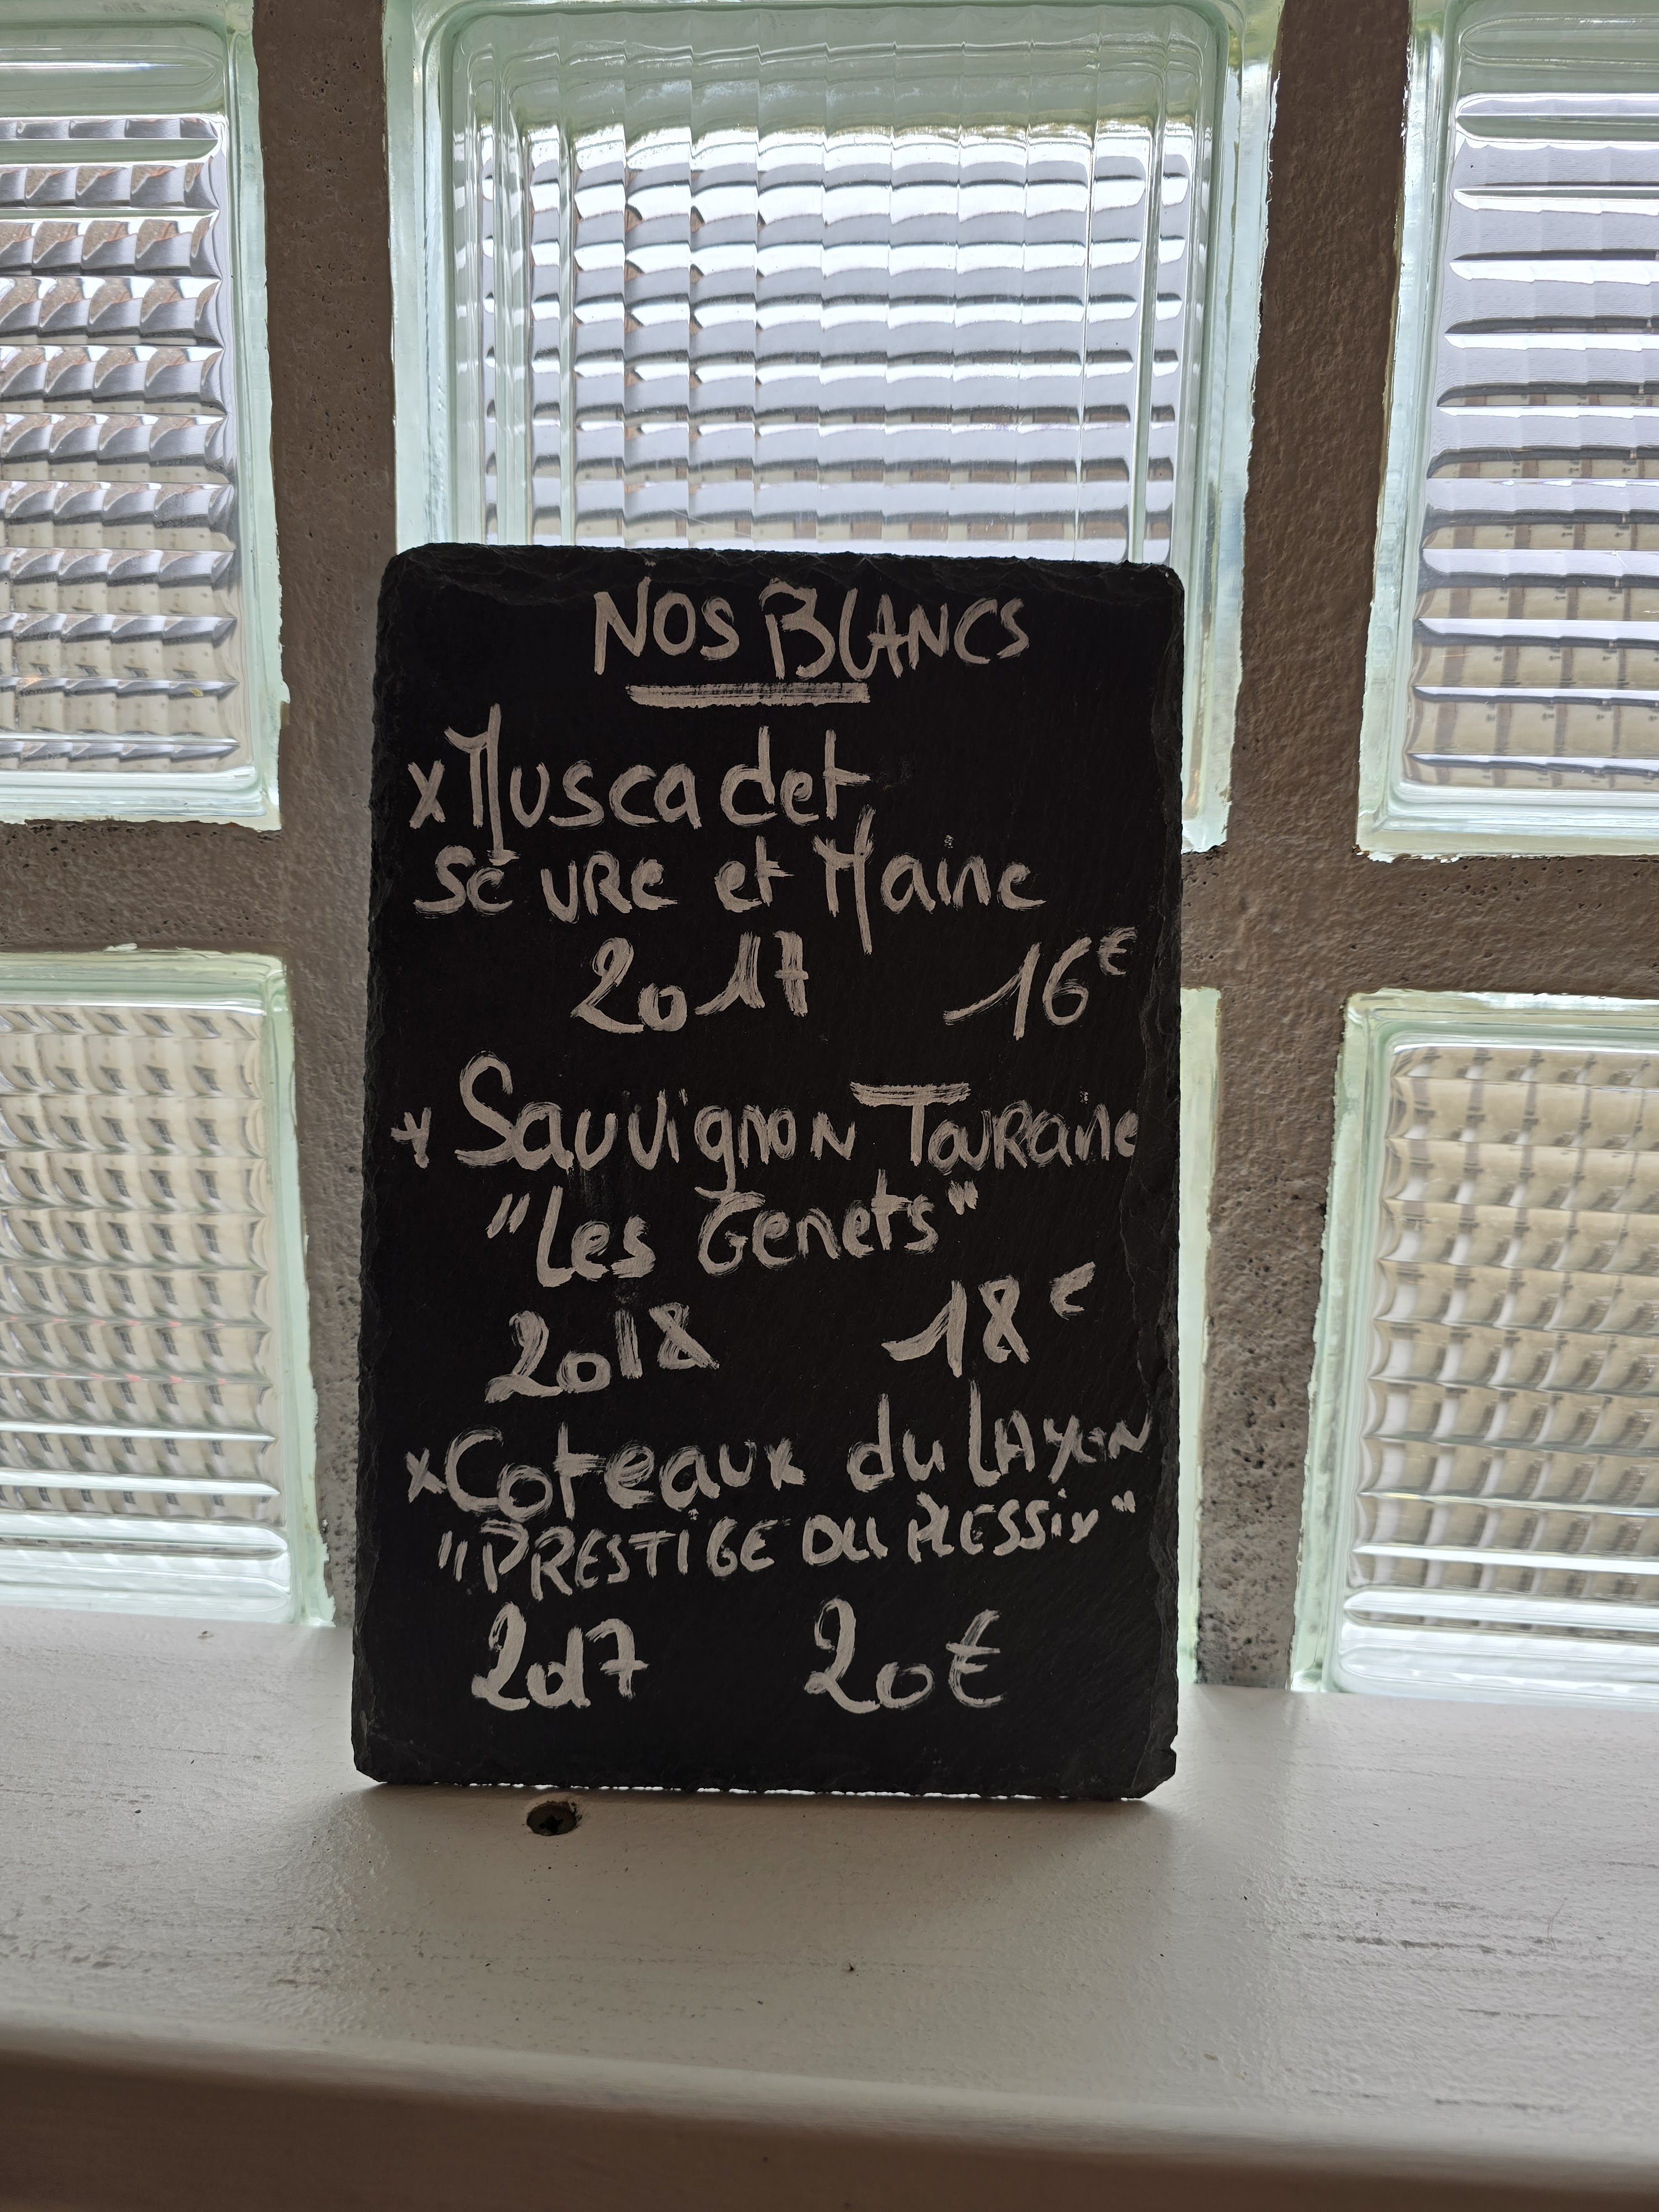 NOS BLANCS
x Muscadet
Sévre et Maine
2017 16€
x Sauvignon Touraine
"Les Genets"
2018 18€
x Coteaux du LAYON
"PRESTIGE DU PLESSIS"
2017 20€